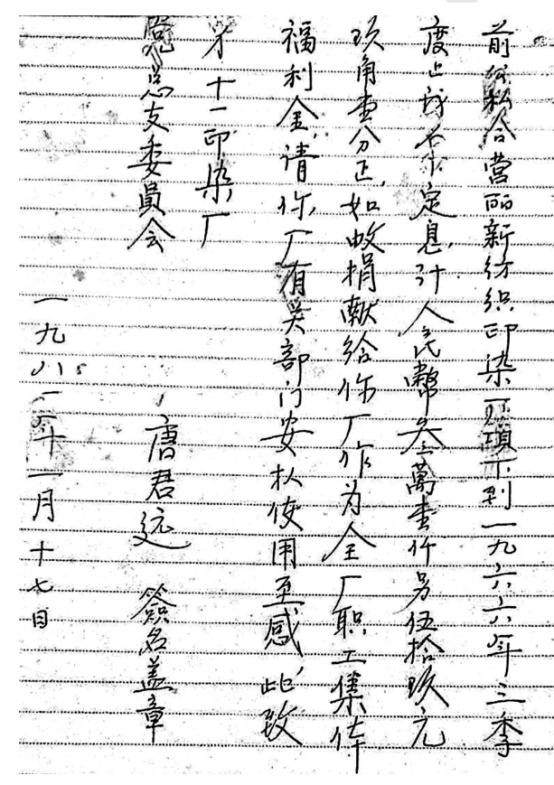 前公私合营丽新纺织印染厂项下到一九六六年三季
度止我名下定息，计人民幣叁萬壹仟另伍拾玖元
玖角壹分正，如数捐献给你厂作为全厂职工集体
福利金，请你厂有关部门安扒使用至感，此致
才十一印染厂
党总支委員会
唐君远 簽名盖章
一九八一年一月十七日